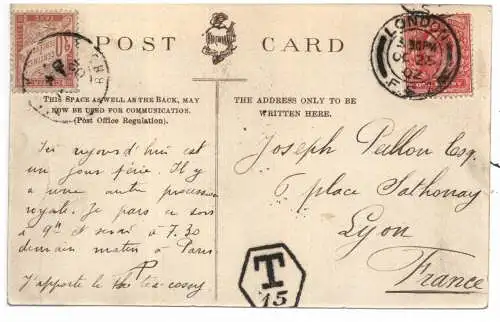 POST CARD
THIS SPACE AS WELL AS THE BACK, MAY
NOW BE USED FOR COMMUNICATION.
(Post Office Regulation).
THE ADDRESS ONLY TO BE
WRITTEN HERE.
LONDON
OC 25
02
Ici aujourd'hui est
un jour férié. Il y
a une autre procession
royale. Je pars ce soir
à 9h et serai à 7.30
demain matin à Paris.
J'apporte le tea-cosey
Joseph Pallon Esq.
6 place Sathonay
Lyon
France
T
15